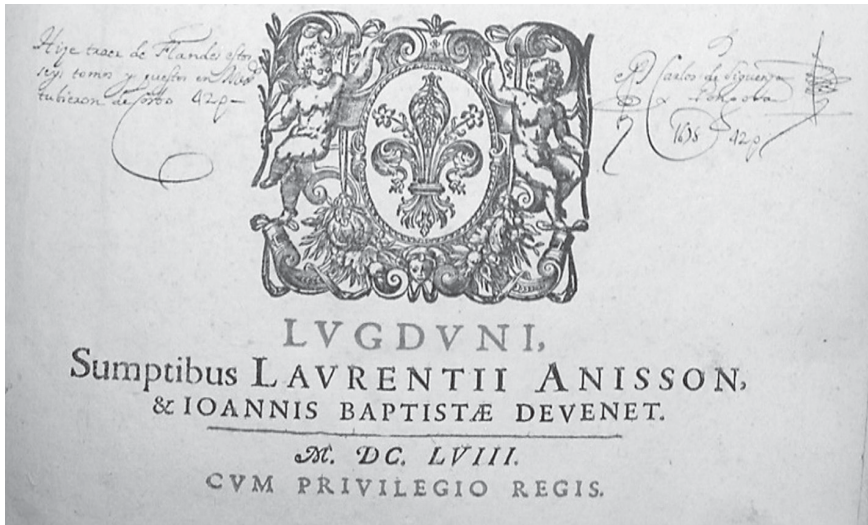 Hize traer de Flandes estos
seys tomos y puestos en
tubieron de costo 42p
D Carlos de Siguenza
y Gongora
1698 42p
LVGDVNI,
Sumptibus LAVRENTII ANISSON,
& IOANNIS BAPTISTÆ DEVENET.
M. DC. LVIII.
CVM PRIVILEGIO REGIS.